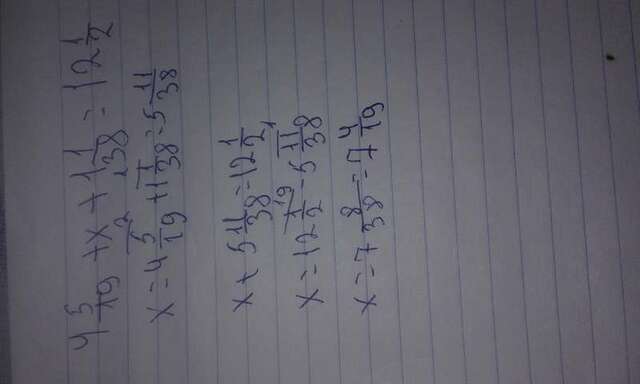 4 5/19 + x + 1 1/38 = 12 1/2
x = 4 5/19 2 + 1 1/38 1 = 5 11/38
x + 5 11/38 = 12 1/2
x = 12 1/2 19 - 5 11/38 1
x = 7 8/38 = 7 4/19